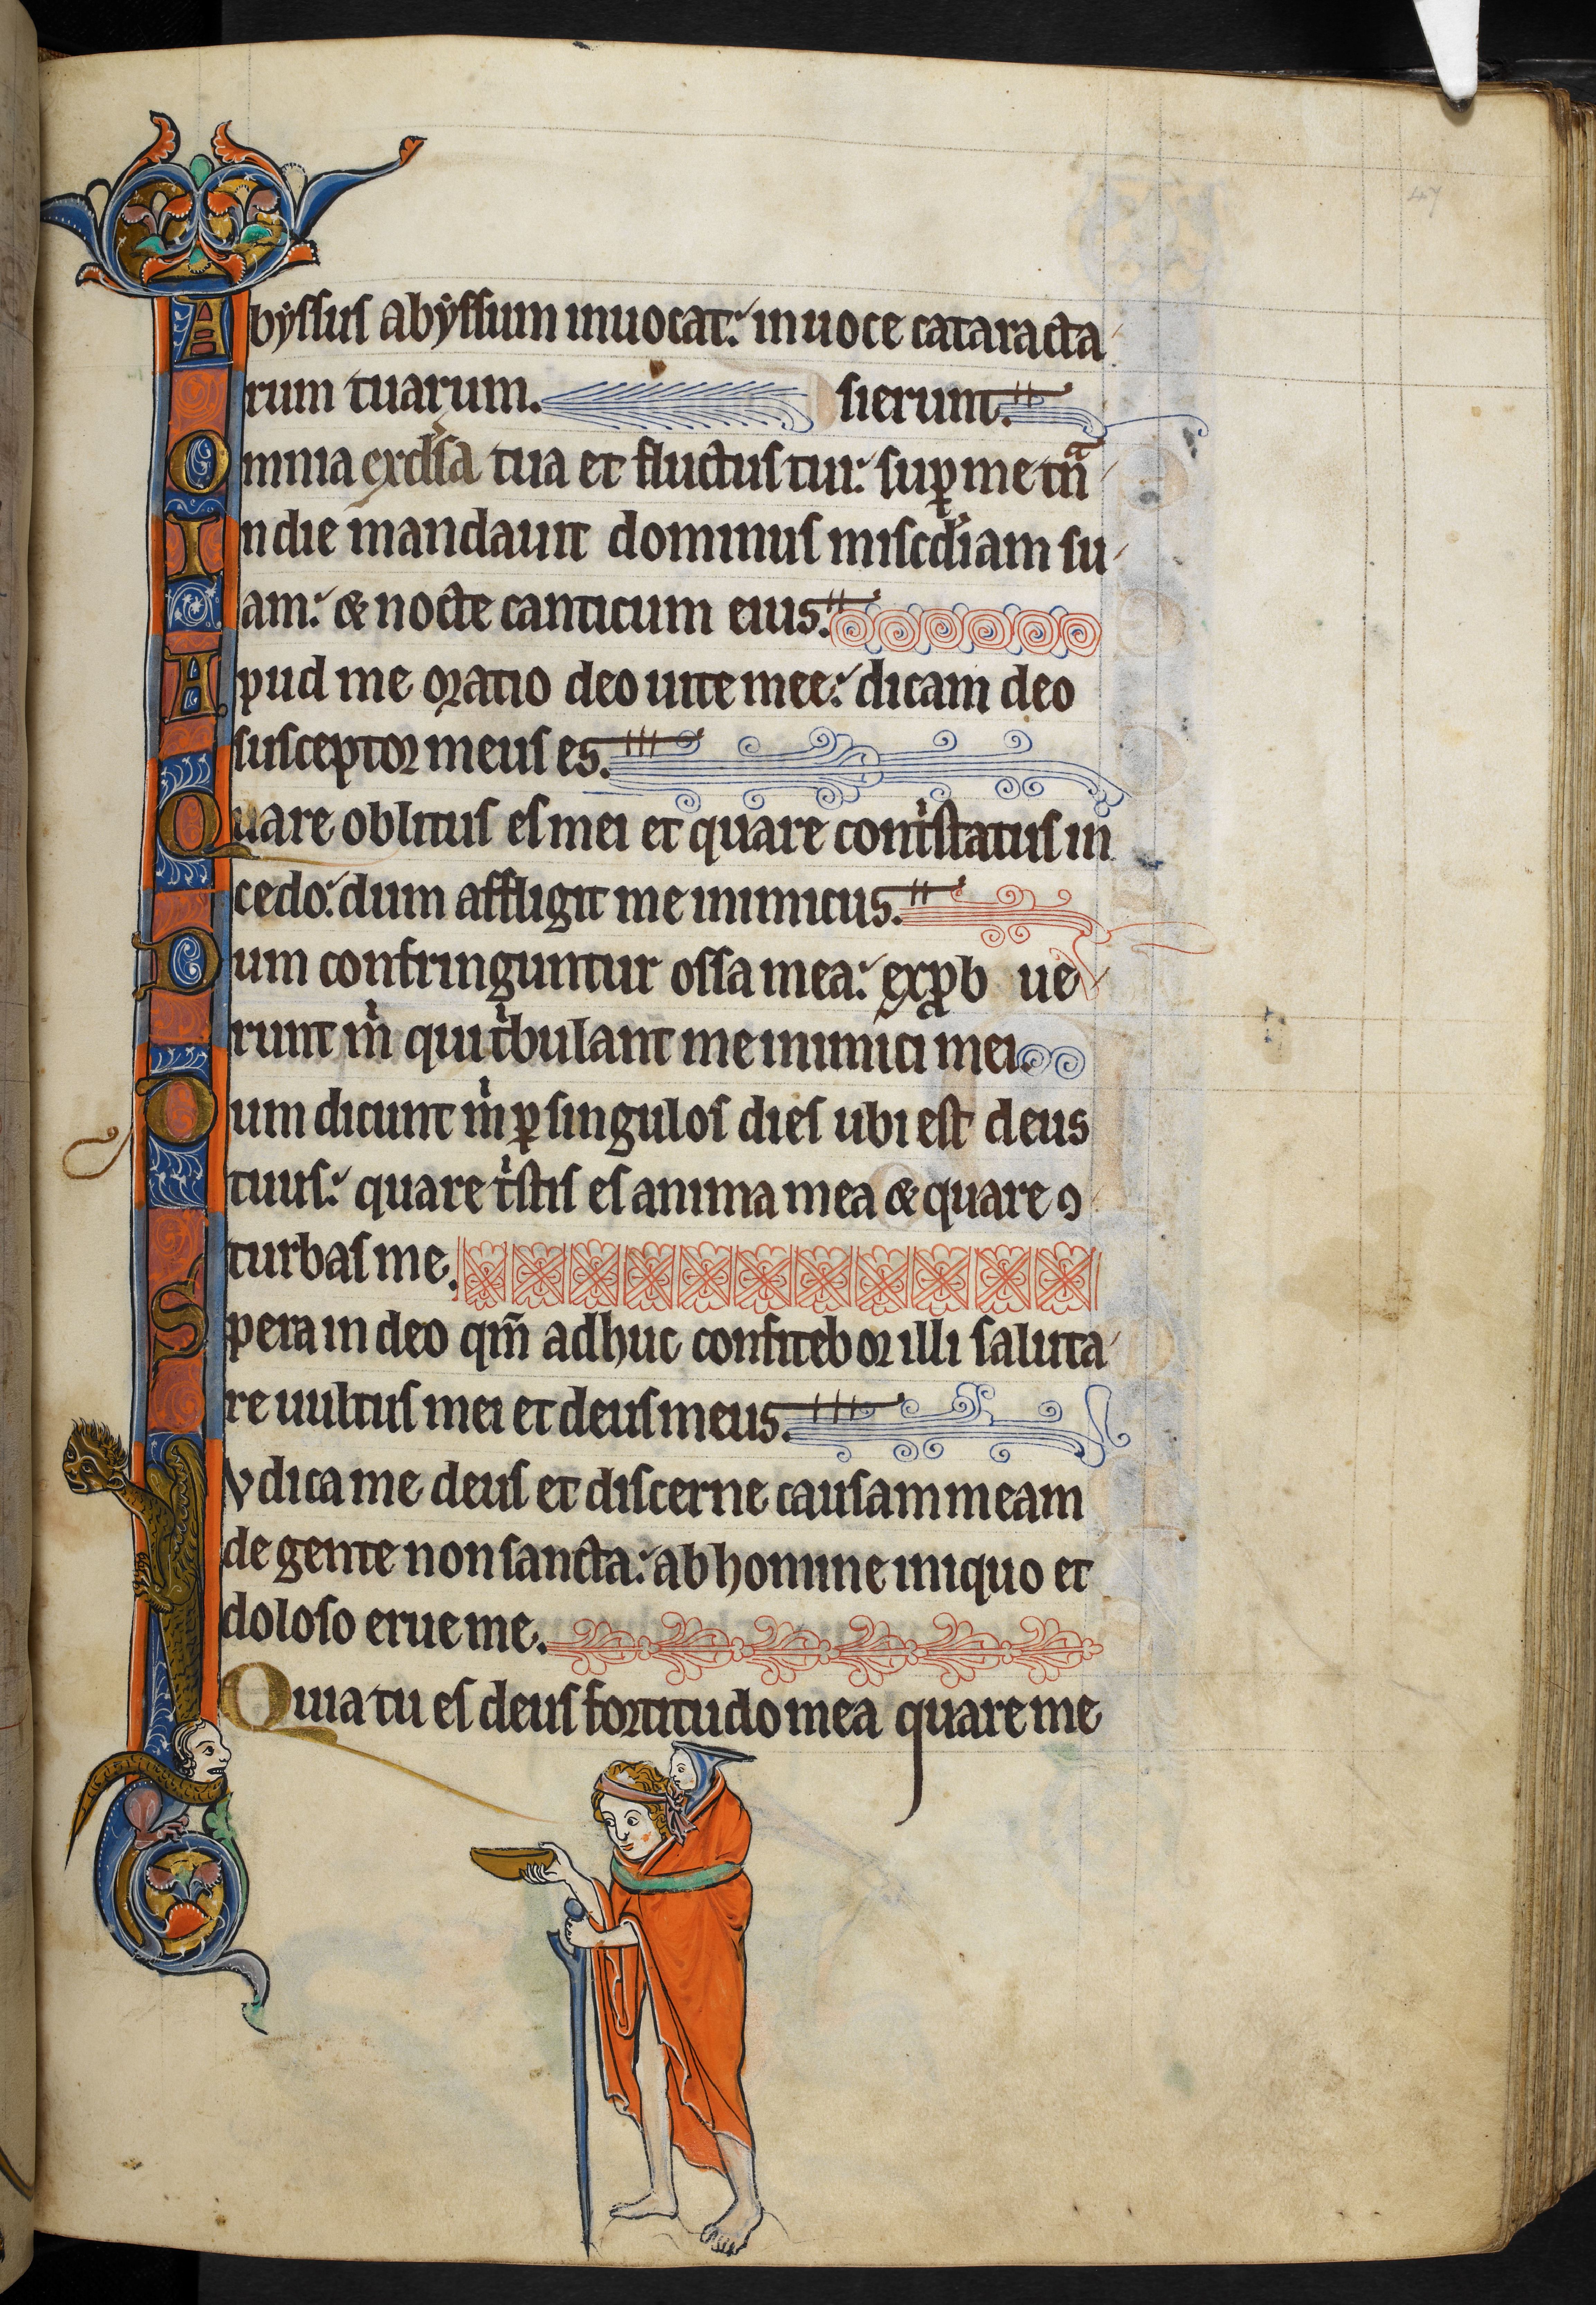 47
Abyssus abyssum inuocat: in uoce cataracta
rum tuarum. sierunt.
Omnia excelsa tua et fluctus tui: sup̱ me tn̄a
In die mandauit dominus miscd̓iam su
am: & nocte canticum eius.
Apud me oratio deo uite mee: dicam deo
susceptor meus es.
Quare oblitus es mei et quare contͥstatus in
cedo: dum affligit me inimicus.
Dum confringuntur ossa mea: exp̱b ue
runt m̓ qui tͥbulant me inimici mei.
Dum dicunt m̓ ꝑ singulos dies ubi est deus
tuus: quare tͥstis es anima mea & quare ꝯ
turbas me.
Spera in deo qm̄ adhuc confitebor illi saluta
re uultus mei et deus meus.
Iudica me deus et discerne causam meam
de gente non sancta: ab homine iniquo et
doloso erue me.
Quia tu es deus fortitudo mea quare me